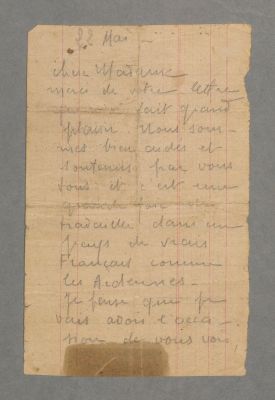 22 Mai -
chère Madame
merci de votre lettre
fait grand
plaisir. Nous som-
mes bien aidés et
soutenus par vous
tous et c'est une
grande
travailler dans un
pays de vrais
Français comme
les Ardennes -
Je pense que je
vais avoir l'occa-
sion de vous voir